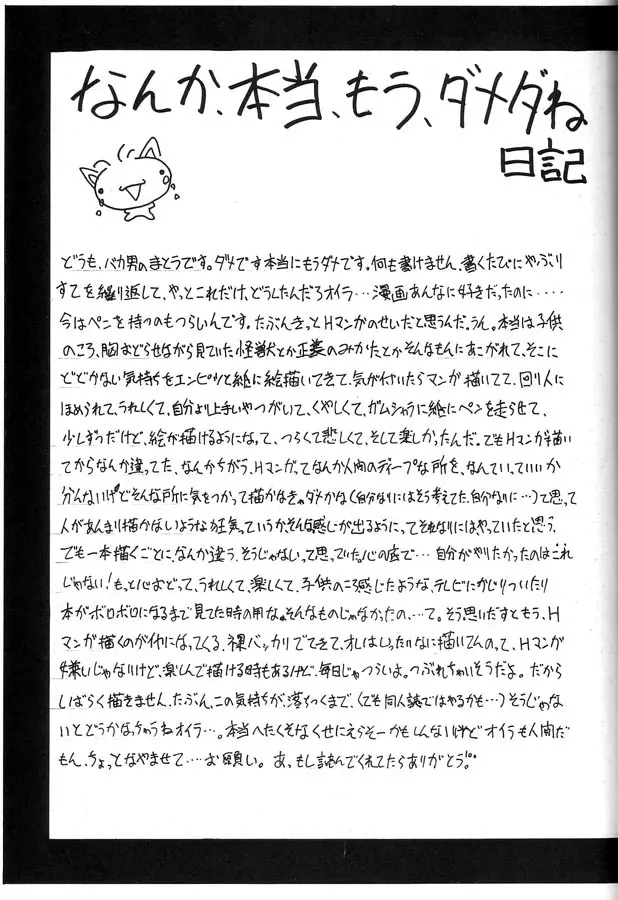 なんか、本当、もう、ダメダね
日記
どうも、バカ男のまとうです。ダメです本当にもうダメです。何も書けません、書くたびにやぶり
すてを繰り返して、やっとこれだけ、どうしたんだろオイラ…漫画あんなに好きだったのに‥‥
今はペンを持つのもつらいんです。たぶんきっとHマンガのせいだと思うんだ。うん。本当は子供
のころ、胸おどらせながら見ていた怪獣とか正義のみかたとかそんなもんにあこがれて、そこに
とどかない気持ちをエンピツと紙に絵描いてきて、気が付いたらマンガ描いてて、回り人に
ほめられて、うれしくて、自分より上手いやつがいて、くやしくて、ガムシャラに紙にペンを走らせて、
少しずつだけど、絵が描けるようになって、つらくて悲しくて、そして楽しかったんだ。でもHマンガ描い
てからなんか違ってた、なんかちがう、Hマンガってなんか人間のディープな所を、なんていっていいか
分んないけどそんな所に気をつかって描かなきゃダメかな(自分なりにはそう考えてた、自分なりに…)て思って
人があんまり描かないような狂気っていうか、そんな感じが出るように、ってそれなりにはやっていたと思う、
でも一本描くごとに、なんか違う、そうじゃないって思っていた。心の底で…自分がやりたかったのはこれ
じゃない!もっと心おどって、うれしくて、楽しくて、子供のころ感じたような、テレビにかじりついたり
本がボロボロになるまで見てた時の用な。そんなものじゃなかったの、…て。そう思いだすともう、H
マンガ描くのがイヤになってくる、裸バッカリでてきて、オレはいったいなに描いてんのって、Hマンガ
嫌いじゃないけど、楽しんで描ける時もあるけど、毎日じゃつらいよ。つぶれちゃいそうだよ。だから
しばらく描きません、たぶん、この気持ちが、落ちつくまで、(でも同人誌ではやるかも…)そうじゃな
いとどうかなっちゃうねオイラ…。本当へたくそなくせにえらそーかもしんないけどオイラも人間だ
もん、ちょっとなやませて…お願い。あ、もし読んでくれてたらありがとう!